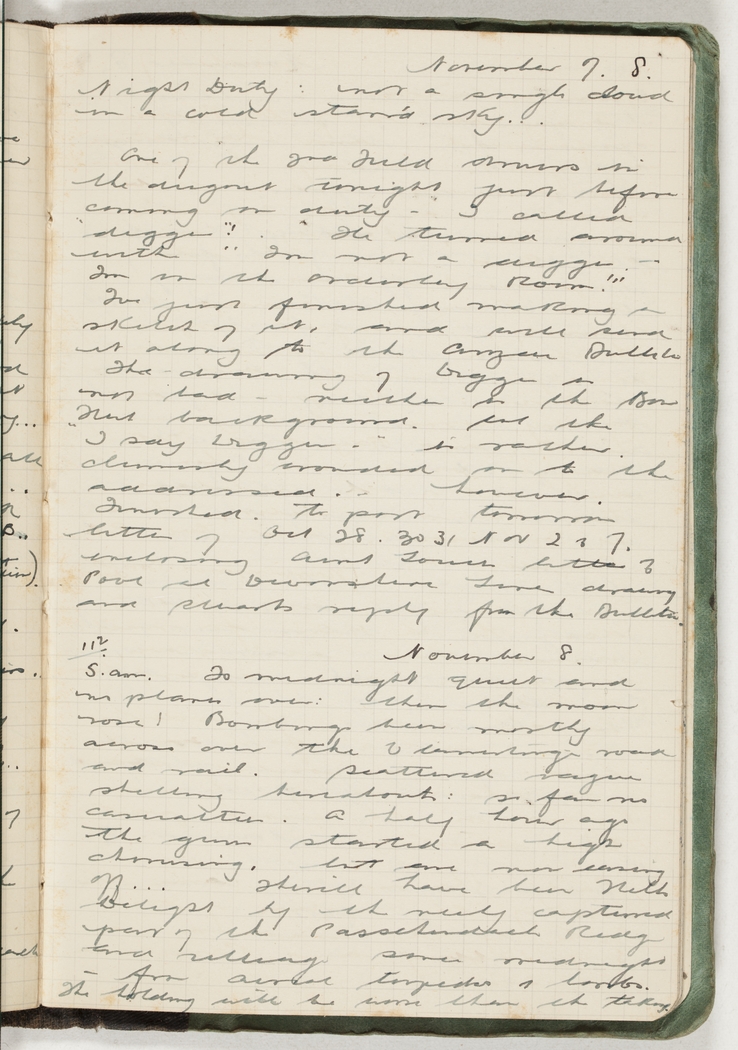 November 7. 8.
Night Duty: not a single cloud
in a cold starr'd sky...
One of the 3rd Field  in
the dugout tonight just before
coming on duty - I called
"digger"! . "He turned around
with " I'm not a digger. -
I'm in the orderley Room."!!
I've just finished making a
sketch of it, and will send
it along to the Anzac Bulletin
The drawing of Digger is
not bad - neither is the Bow
Hut background. but the
"I say Digger." is rather
clumsily  on to the
addressed... however.
Finished. To post tomorrow
letter of Oct 28. 30 31 Nov 2 & 7.
enclosing Aunt  letter &
 Decorative Line drawing
and  reply from the Bulletin.
November 8.
112
5. am. To midnight quiet and
no planes over: then the moon
rose! Bombing been mostly
across over the Vlamertinge road
and rail. Scattered vague
shelling hereabout: so far no
casualties. A half hour ago
the guns started a high
chorusing. but are now easing
off... There'll have been Hell's
Delight by the newly captured
part of the Passchendaele Ridge
and  since midnight
- from aerial torpedos & bombs.
The holding will be worse than the taking.